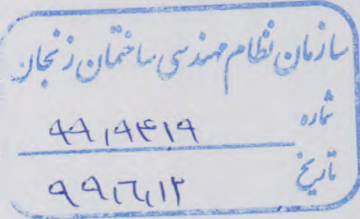 سازمان نظام مهندسی ساختمان زنجان
شماره ۹۹,۹۴۱۹
تاریخ ۹۹,۶,۱۲